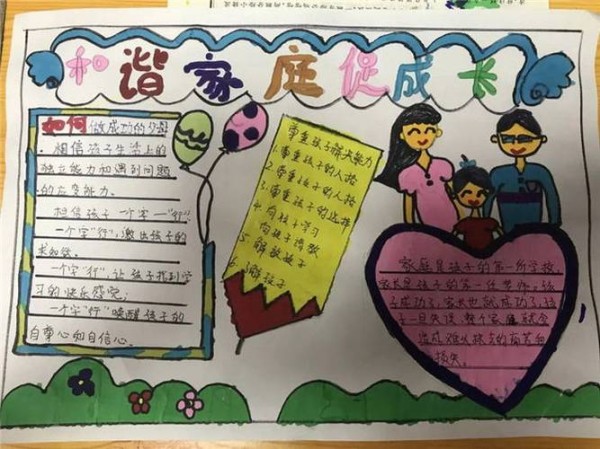 和谐家庭促成长
如何做成功的父母
相信孩子生活上的
独立能力和遇到问题
的应变能力。
相信孩子一个字一"行"
一个字"行",激出孩子的
求知欲。
一个字"行",让孩子找到学
习的快乐感觉;
一个字"行"唤醒孩子的
自尊心和自信心。
尊重孩子解决能力
1.尊重孩子的人格
2.尊重孩子的人格
3.尊重孩子的选择
4.同孩子学习
向孩子请教
5.解放孩子
6.解孩子
家庭是孩子的第一所学校,
家长是孩子的第一任老师。孩
子成功了,家长也就成功了,孩
子一旦失误,整个家就会
造成难以抹去的痛苦和
损失。